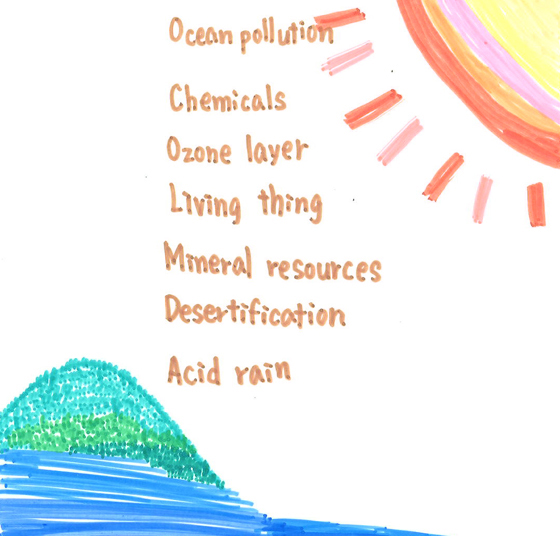 Ocean pollution
Chemicals
Ozone layer
Living thing
Mineral resources
Desertification
Acid rain